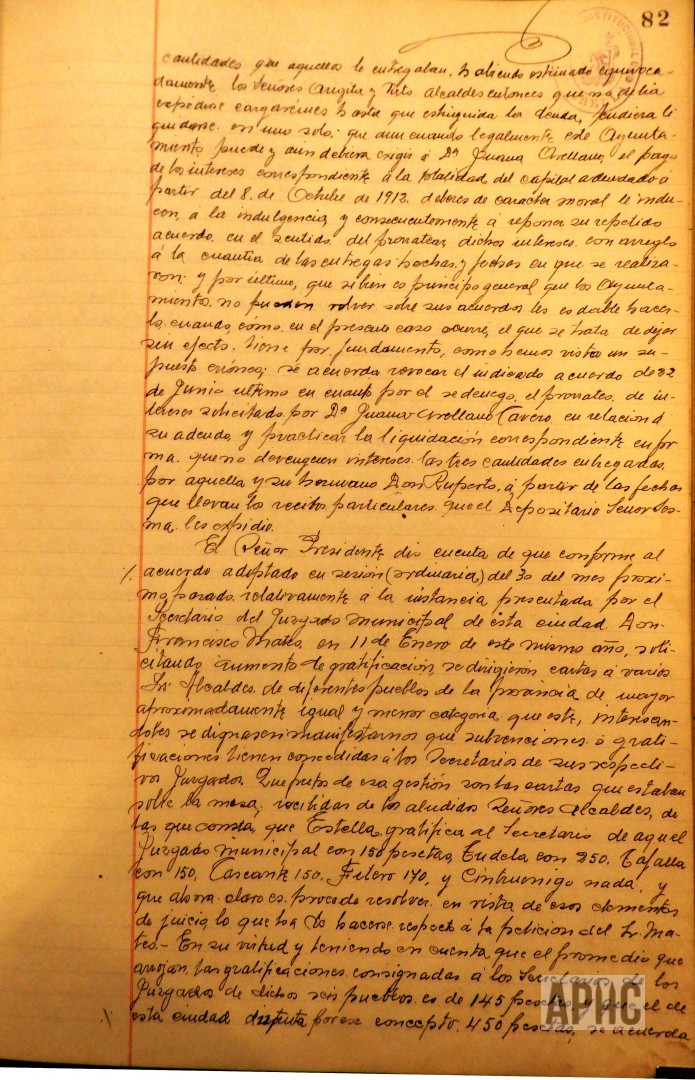 82
cantidades que aquellos le entregaban, habiendo estimado equivoca-
damente los Señores Angita y Tirto, alcaldes entonces que no debia
expedirse cargarémes hasta que extinguida la deuda, pudiera li
quidarse en uno solo: que aun cuando legalmente este Ayunta-
miento puede y aun debiera exigir á Dª Juana Arellano, el pago
de los intereses correspondiente á la totalidad del capital adeudado á
partir del 8 de Octubre de 1912, deberes de caracter moral le indu-
cen á la indulgencia y consecuentemente á reponer su repetido
acuerdo en el sentido del prorratear dichos intereses con arreglo
á la cuantia de las entregas hechas, y fechas en que se realiza-
ron: y por último, que si bien es principio general que los Ayunta-
mientos no pueden volver sobre sus acuerdos les es dable hacer-
lo cuando, cómo en el presente caso ocurre, el que se trata de dejar
sin efecto tiene por fundamento, como hemos visto un su-
puesto erróneo; se acuerda revocar el indicado acuerdo de 22
de Junio último en cuanto por el se denego, el prorrateo de in-
tereses solicitado por Dª Juana Arellano Cavero en relacion á
su adeudo, y practicar la liquidación correspondiente en for
ma que no devenguen intereses las tres cantidades entregadas
por aquella y su hermano Don Ruperto, á partir de las fechas
que llevan los recibos particulares que el Depositario Señor Les-
ma les expidio.
El Señor Presidente dio cuenta de que conforme al
acuerdo adoptado en sesión (ordinaria) del 30 del mes proxi-
mo pasado relativamente á la instancia presentada por el
Secretario del Juzgado municipal de esta ciudad Don
Francisco Mateo, en 11 de Enero de este mismo año, soli-
citando aumento de gratificación, se dirigieron cartas á varios
Srs Alcaldes de diferentes pueblos de la provincia de mayor
aproximadamente igual y menor categoria que este, interesan-
doles se dignasen manifestarnos que subvenciones ó grati-
ficaciones tienen concedidas á los Secretarios de sus respecti-
vos Juzgados. Que fruto de esa gestión son las cartas que estaban
sobre la mesa, recibidas de los aludidos Señores Alcaldes, de
las que consta, que Estella, gratifica al Secretario de aquel
Juzgado municipal con 150 pesetas, Tudela con 250. Tafalla
con 150, Cascante 150. Fitero 170, y Cintruenigo nada, y
que ahora claro es, procede resolver en vista de esos elementos
de juicio lo que ha de hacerse respecto á la petición del Sr. Ma-
teo.- En su virtud y teniendo en cuenta que el promedio que
arrojan las gratificaciones consignadas á los Secretarios de los
Juzgados de dichos seis pueblos es de 145 pesetas y que el de
esta ciudad disfruta por ese concepto 450 pesetas, se acuerda
APHC